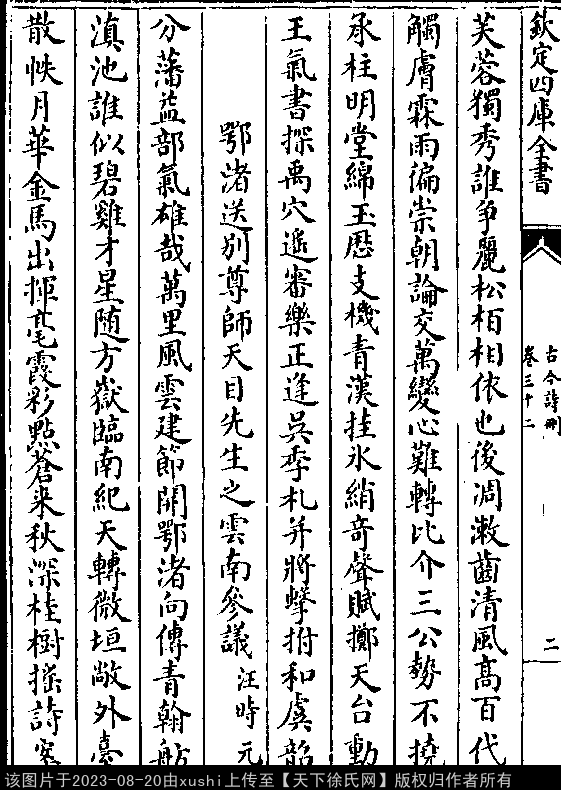 欽定四庫全書
古今詩刪
卷三十二
二
芙蓉獨秀誰爭麗松栢相依也後凋漱齒清風髙百代
觸膚霖雨徧崇朝論交萬變心難轉比介三公勢不撓
承柱明堂綿玉厯支機青漢挂氷綃竒聲賦擲天台動
王氣書探禹穴遥審樂正逢吳季札并將擊拊和虞韶
鄂渚送别尊師天目先生之雲南參議 汪時元
分藩益部氣雄哉萬里風雲建節開鄂渚向傳青翰舫
滇池誰似碧雞才星随方嶽臨南紀天轉微垣敞外臺
散帙月華金馬出揮毫霞彩點蒼来秋深桂樹揺詩
该图片于2023-08-20由xushi上传至【天下徐氏网】版权归作者所有